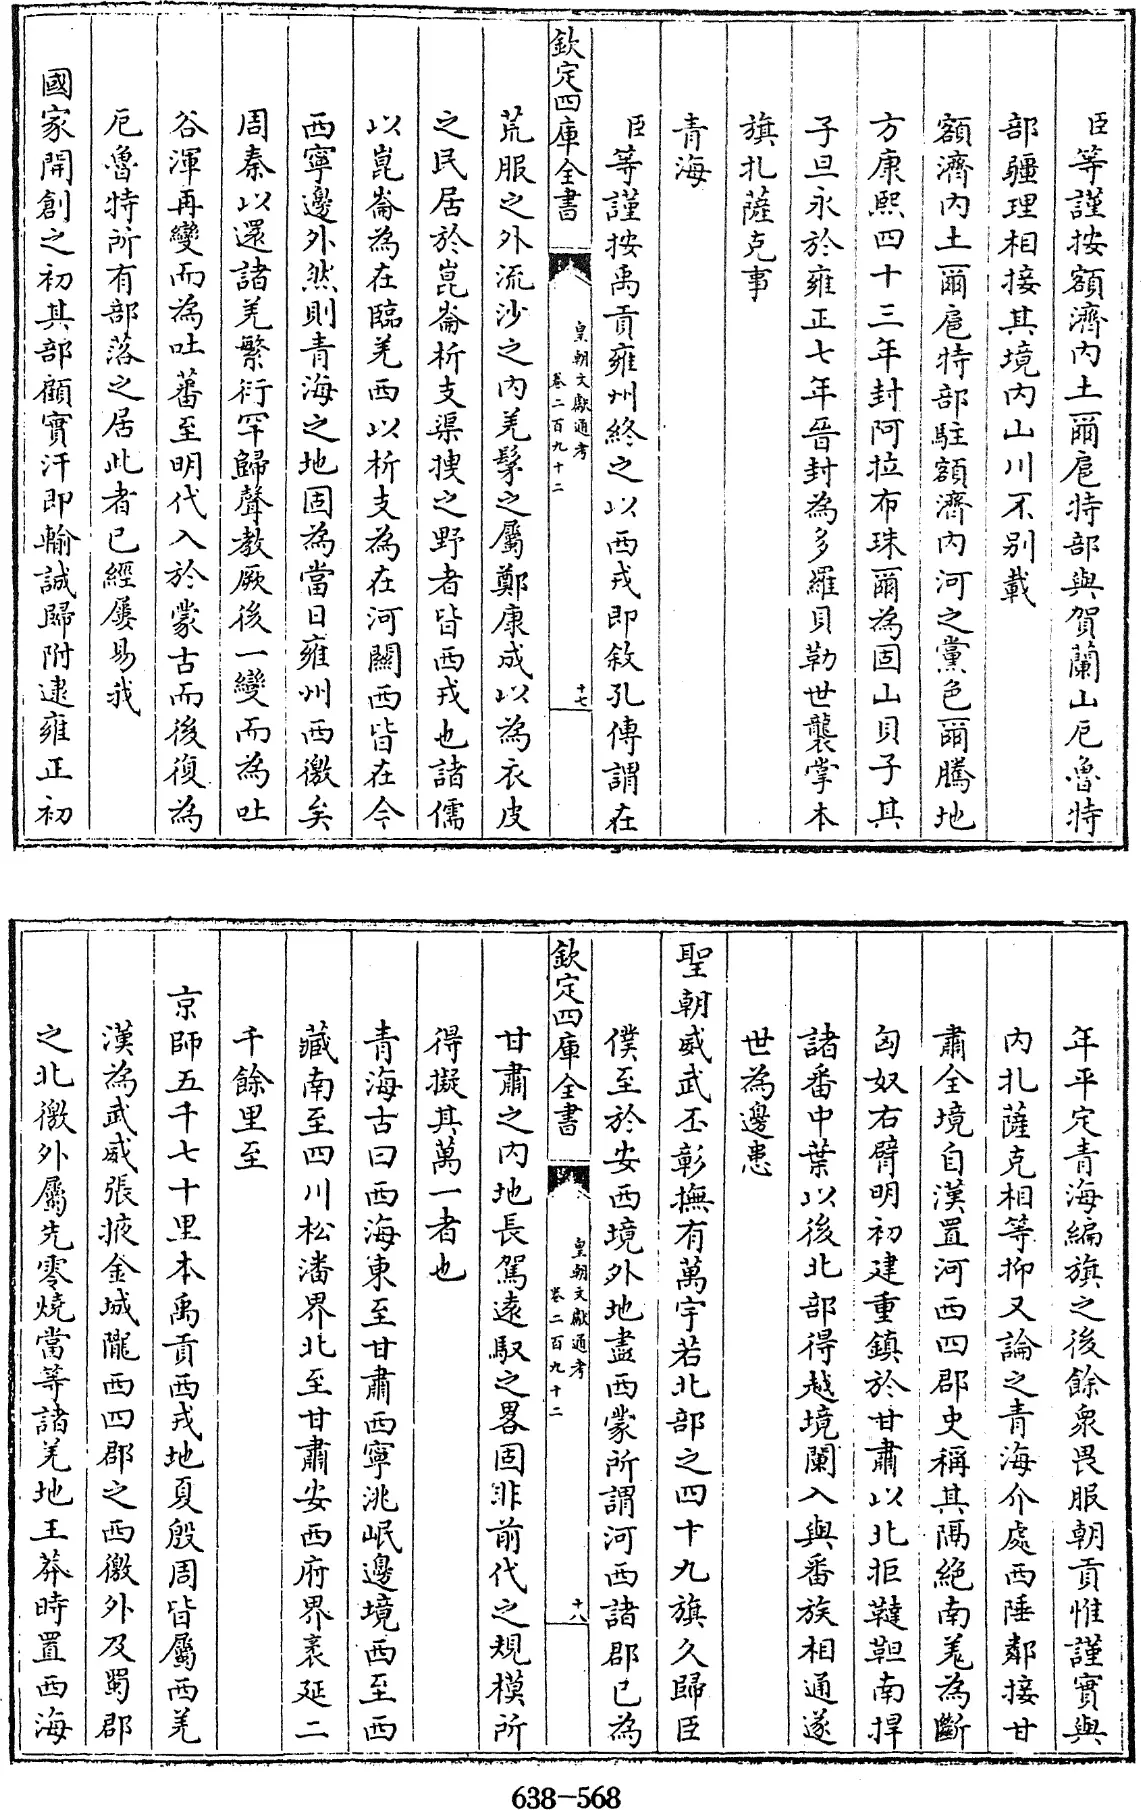 臣等謹按額濟內土爾扈特部與賀蘭山厄魯特
部疆理相接其境內山川不別載
額濟內土爾扈特部駐額濟內河之黨色爾騰地
方康熙四十三年封阿拉布珠爾為固山貝子其
子旦永於雍正七年晉封為多羅貝勒世襲掌本
旗扎薩克事
青海
臣等謹按禹貢雍州終之以西戎即敘孔傳謂在
欽定四庫全書
皇朝文獻通考
卷二百九十二
十七
荒服之外流沙之內羌髳之屬鄭康成以為衣皮
之民居於崑崙析支渠搜之野者皆西戎也諸儒
以崑崙為在臨羌西以析支為在河關西皆在今
西寧邊外然則青海之地固為當日雍州西徼矣
周秦以還諸羌繁衍罕歸聲教厥後一變而為吐
谷渾再變而為吐蕃至明代入於蒙古而後復為
厄魯特所有部落之居此者已經屢易我
國家開創之初其部顧實汗即輸誠歸附逮雍正初
年平定青海編旗之後餘衆畏服朝貢惟謹實與
內扎薩克相等抑又論之青海介處西陲鄰接甘
肅全境自漢置河西四郡史稱其隔絕南羌為斷
匈奴右臂明初建重鎮於甘肅以北拒韃靼南捍
諸番中葉以後北部得越境闌入與番族相通遂
世為邊患
聖朝威武丕彰撫有萬宇若北部之四十九旗久歸臣
僕至於安西境外地盡西蒙所謂河西諸郡已為
欽定四庫全書
皇朝文獻通考
卷二百九十二
十八
甘肅之內地長駕遠馭之畧固非前代之規模所
得擬其萬一者也
青海古曰西海東至甘肅西寧洮岷邊境西至西
藏南至四川松潘界北至甘肅安西府界袤延二
千餘里至
京師五千七十里本禹貢西戎地夏殷周皆屬西羌
漢為武威張掖金城隴西四郡之西徼外及蜀郡
之北徼外屬先零燒當等諸羌地王莽時置西海
638-568